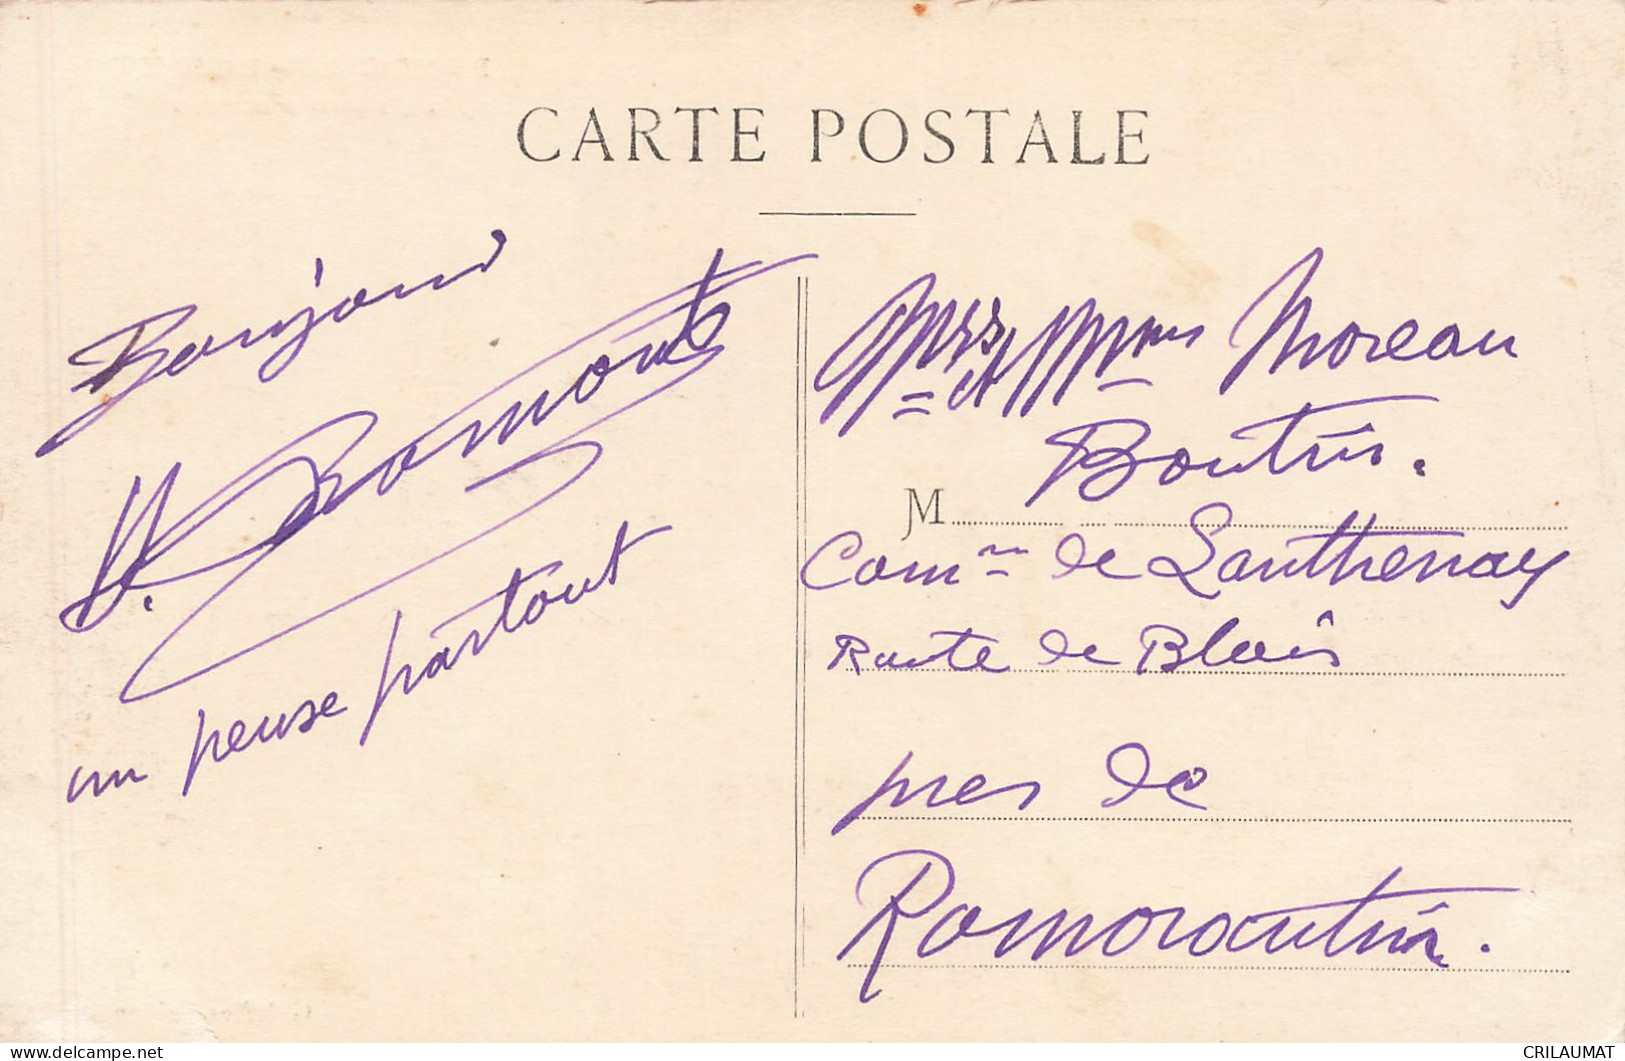 CARTE POSTALE
Bonjour
un pense partout
Mrs et Mmes Moreau
Boutin.
M
Comne de Lanthenay
Route de Blois
pres de
Romorantin.
CRILAUMAT